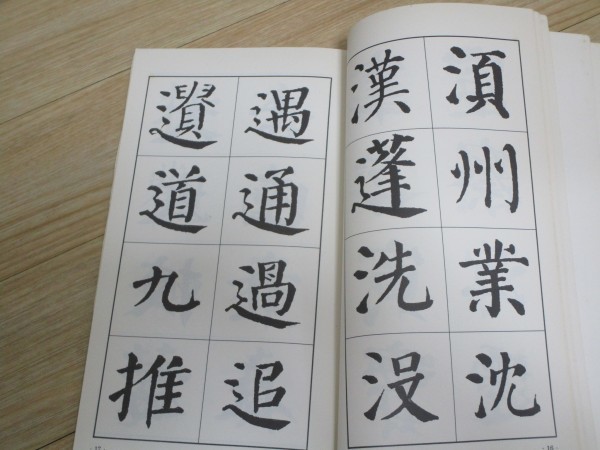 湏州業沈
漢蓬洗没
遇通過追
遺道九推